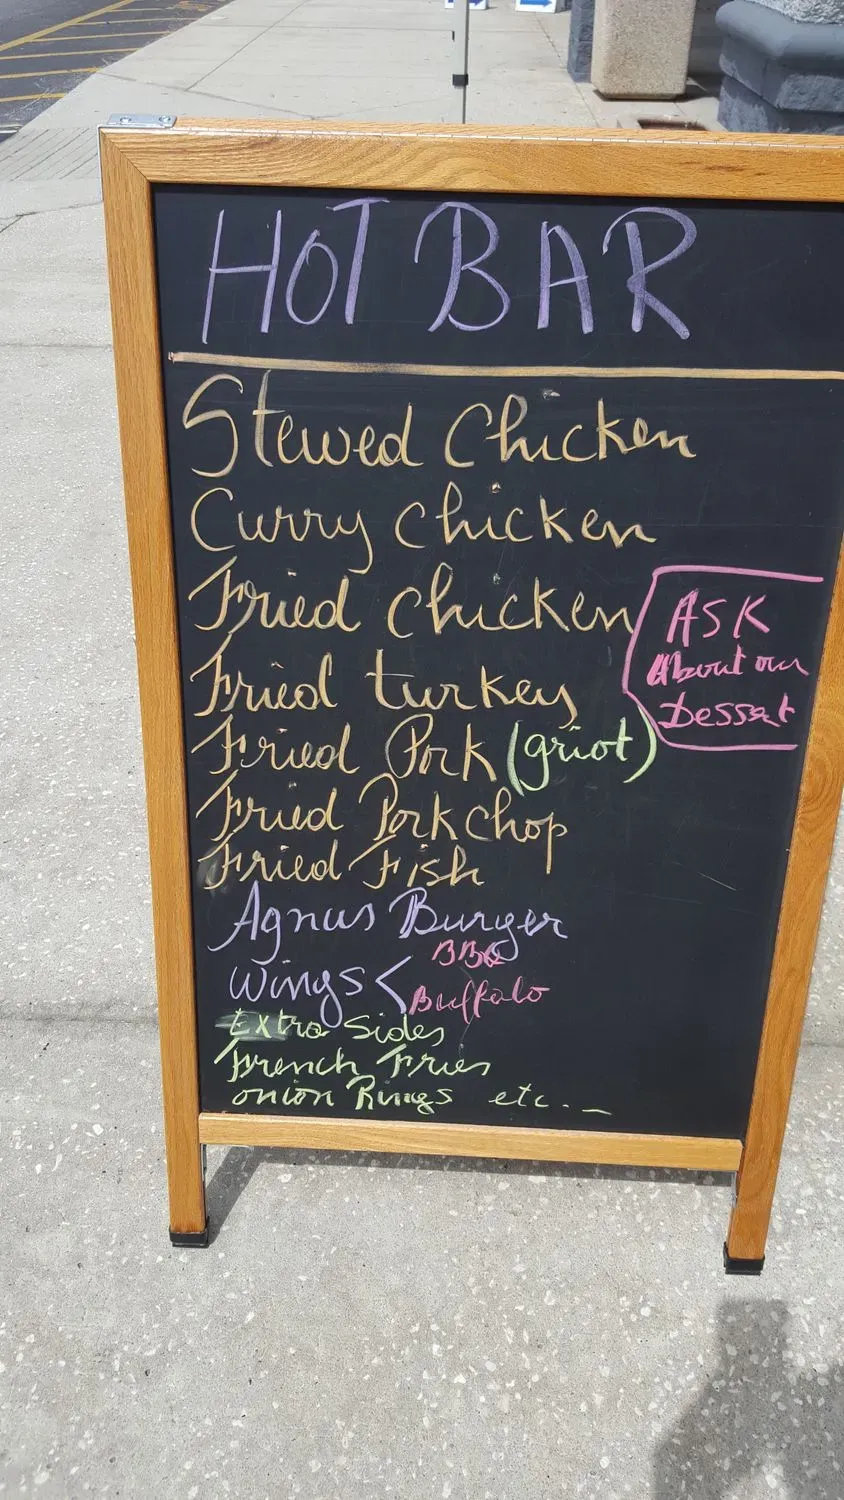 HOT BAR
Stewed Chicken
Curry chicken
Fried chicken
Fried turkey
Fried Pork (griot)
Fried Pork chop
Fried Fish
Agnus Burger
Wings < BBQ
Buffalo
Extra Sides
French Fries
onion Rings etc...
ASK
About our
Dessert